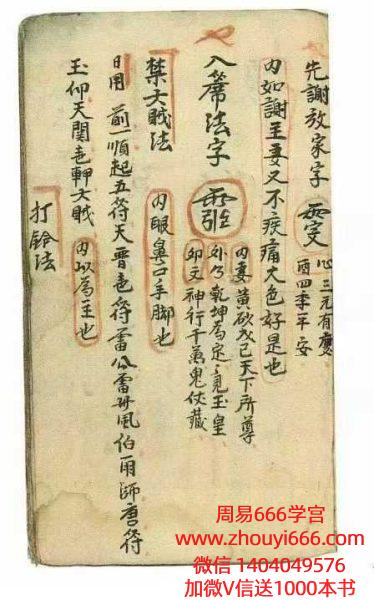 先謝放家字
心三元有慶
酉四季平安
内如謝主妻又不疾痛大色好是也
入席法字
内妻黃砂戊己天下所尊
外乃乾坤為定竟玉皇
卯文神行千萬鬼伏藏
禁犬賊法
内眼鼻口手脚也
日用前一順起五符天晋毫符蕾公雷母風伯雨師唐符
玉仰天閣毫押犬賊
内以為主也
打鈴法
周易666学宫
www.zhouyi666.com
微信 1404049576
加微V信送1000本书